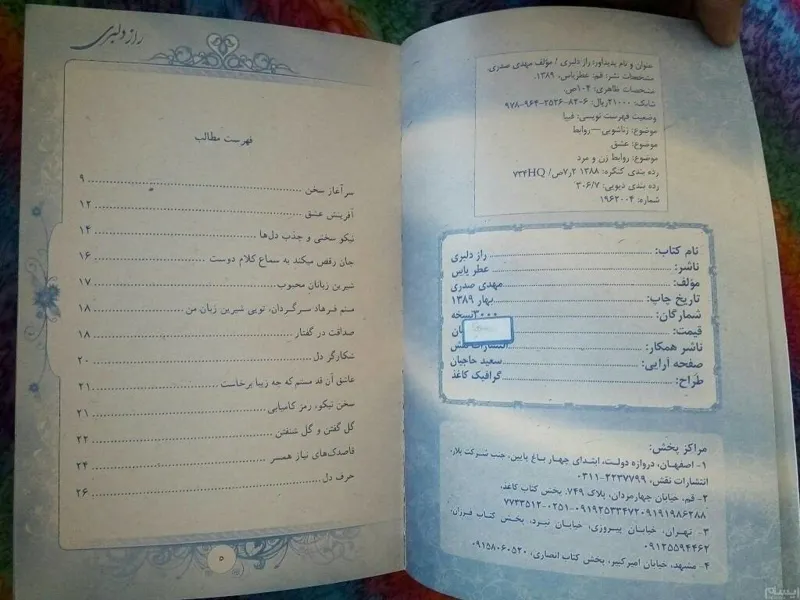 عنوان و نام پدیدآور: راز دلبری / مؤلف مهدی صدری.
مشخصات نشر: قم: عطریاس، ۱۳۸۹.
مشخصات ظاهری: ۱۰۴ص.
شابک: ۲۱۰۰۰ریال: ۶-۸۲-۲۵۲۶-۹۶۴-۹۷۸
وضعیت فهرست نویسی: فیپا
موضوع: زناشویی—روابط
موضوع: عشق
موضوع: روابط زن و مرد
رده بندی کنگره: ۱۳۸۸ ۲ر۷ص/ ۷۳۴HQ
رده بندی دیویی: ۳۰۶/۷
شماره: ۱۹۶۲۰۰۴
نام کتاب: راز دلبری
ناشر: عطر یاس
مؤلف: مهدی صدری
تاریخ چاپ: بهار ۱۳۸۹
شمارگان: ۳۰۰۰نسخه
قیمت:
ناشر همکار: نقش
صفحه آرایی: سعید حاجیان
طراح: گرافیک کاغذ
مراکز پخش:
۱- اصفهان، دروازه دولت، ابتدای چهار باغ پایین، جنب شرکت پلار،
انتشارات نقش، ۲۲۳۷۷۹۹-۰۳۱۱
۲- قم، خیابان چهارمردان، پلاک ۷۴۹. پخش کتاب کاغذ،
۷۷۳۳۵۱۲-۰۲۵۱-۰۹۱۹۲۵۳۳۴۷۲-۰۹۱۹۱۹۸۶۲۸۸
۳- تهران، خیابان پیروزی، خیابان نبرد، پخش کتاب فرزان،
۰۹۱۲۵۵۹۴۴۶۲
۴- مشهد، خیابان امیرکبیر، پخش کتاب انصاری، ۰۹۱۵۸۰۶۰۵۲۰
راز دلبری
فهرست مطالب
سرآغاز سخن ۹
آفرینش عشق ۱۲
نیکو سخنی و جذب دل‌ها ۱۴
جان رقص میکند به سماع کلام دوست ۱۶
شیرین زبانان محبوب ۱۷
منم فرهاد سرگردان، تویی شیرین زبان من ۱۸
صداقت در گفتار ۱۸
شکارگر دل ۲۰
عاشق آن قد مستم که چه زیبا برخاست ۲۱
سخن نیکو، رمز کامیابی ۲۱
گل گفتن و گل شنفتن ۲۲
قاصدک‌های نیاز همسر ۲۴
حرف دل ۲۶
۵